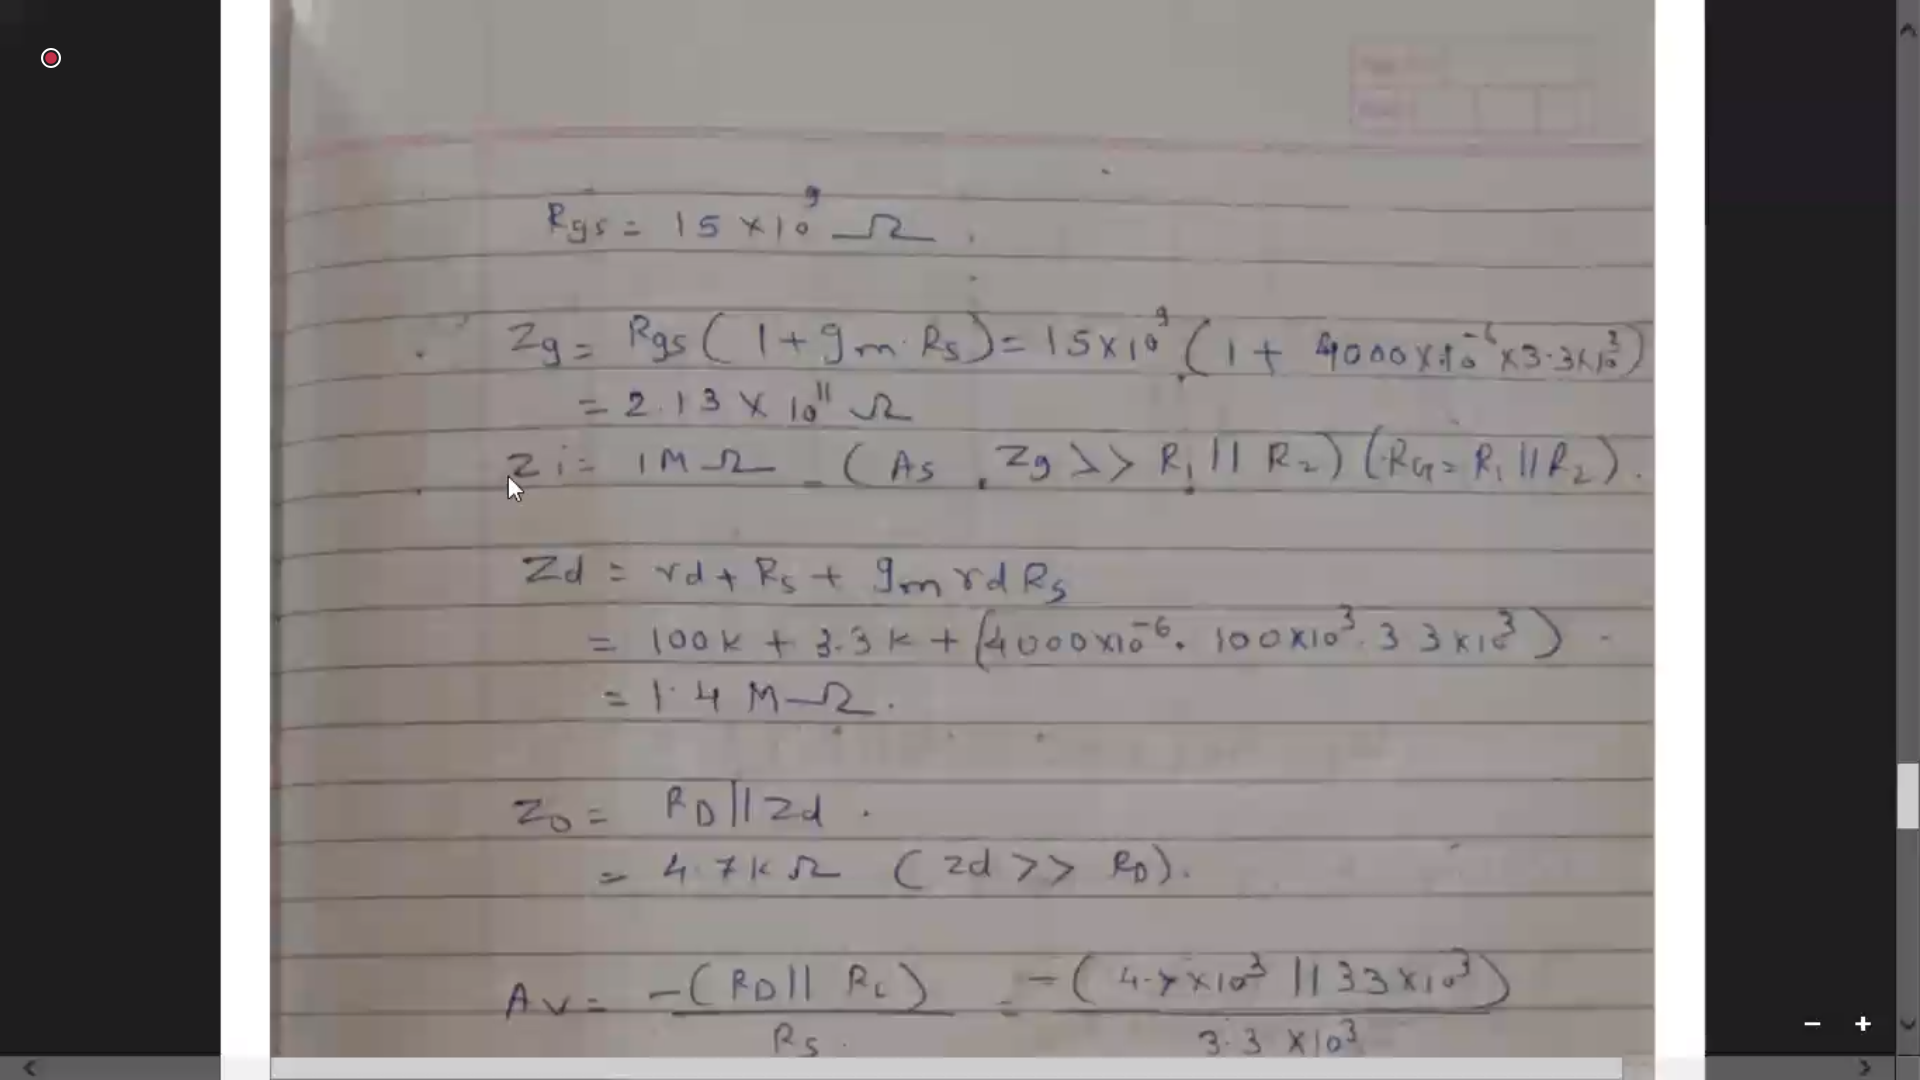 Rgs = 15 × 10⁹ Ω.
Zg = Rgs ( 1 + gm · Rs ) = 15 × 10⁹ ( 1 + 4000 × 10⁻⁶ × 3.3 × 10³ )
= 2.13 × 10¹¹ Ω
Zi = 1 M Ω - ( As , Zg >> R₁ || R₂ ) ( RG = R₁ || R₂ ) .
Zd = rd + Rs + gm rd Rs
= 100 k + 3.3 k + ( 4000 × 10⁻⁶ . 100 × 10³ . 3 3 × 10³ )
= 1.4 M Ω .
Zo = RD || Zd .
= 4.7 k Ω ( Zd >> RD ) .
Av = -( RD || RL ) / Rs . = -( 4.7 × 10³ || 33 × 10³ ) / 3.3 × 10³